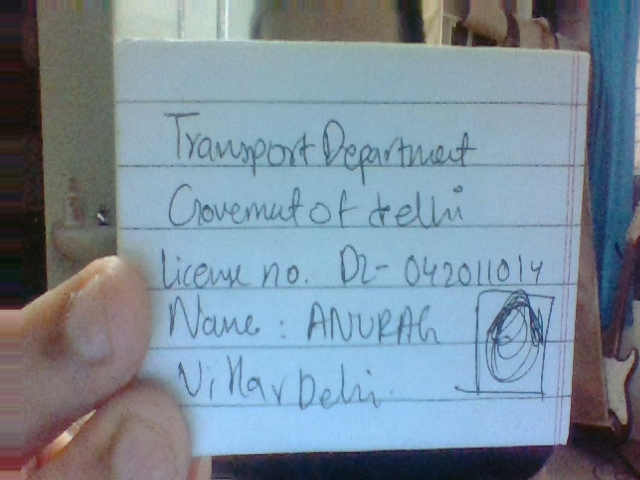 Transport Department
Governmut of delhi
License no. DL- 042011014
Name : ANURAG
Vihar Delhi